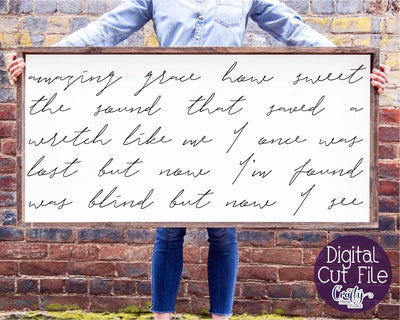 amazing grace how sweet
the sound that saved a
wretch like me I once was
lost but now I'm found
was blind but now I see
Digital
Cut File
Crafty